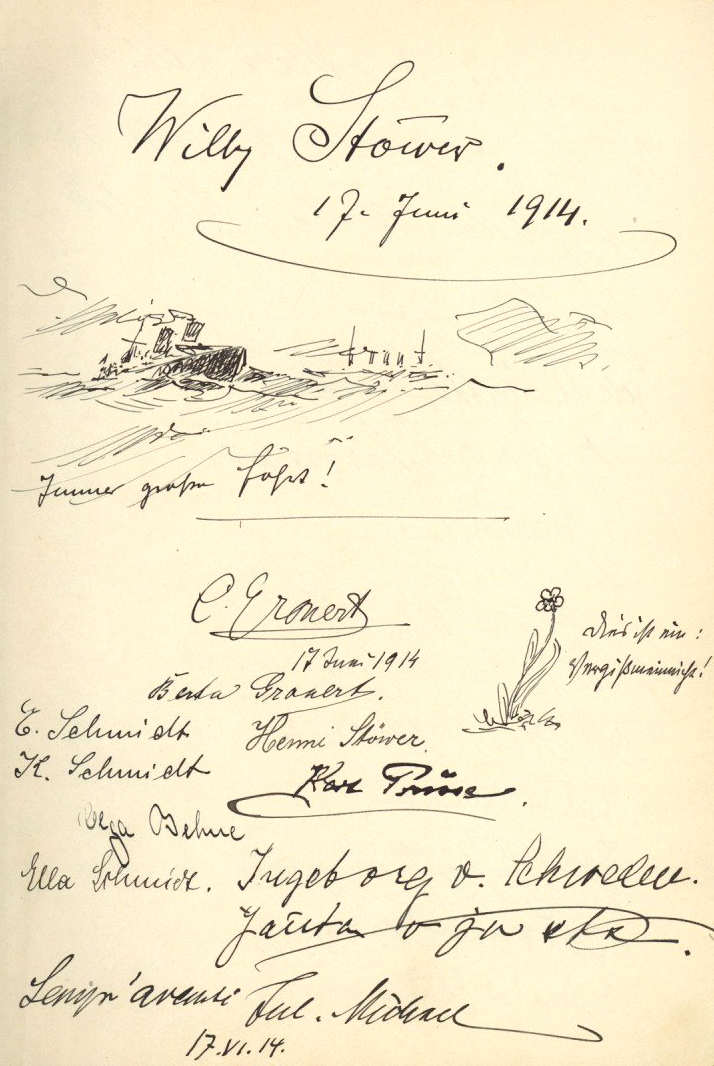 Willy Stöwer.
17. Juni 1914.
Immer große Fahrt!
C. Gronert
17 Juni 1914
Berta Gronert.
Dies ist ein:
Vergißmeinnicht!
E. Schmidt
Henni Stöwer.
K. Schmidt
Karl
Behne
Ella Schmidt.
Ingeborg v. Schweden.
Semp'avanti Jul. Michael
17.VI.14.